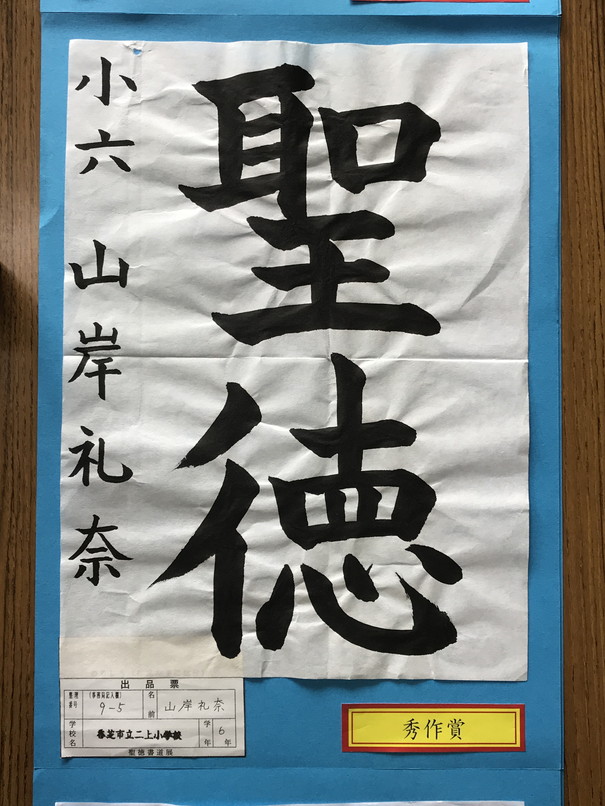 聖徳
小六 山岸礼奈
出品票
整理番号 (事務局記入欄) 9-5 名前 山岸礼奈
学校名 香芝市立二上小学校 学年 6年
聖徳書道展
秀作賞